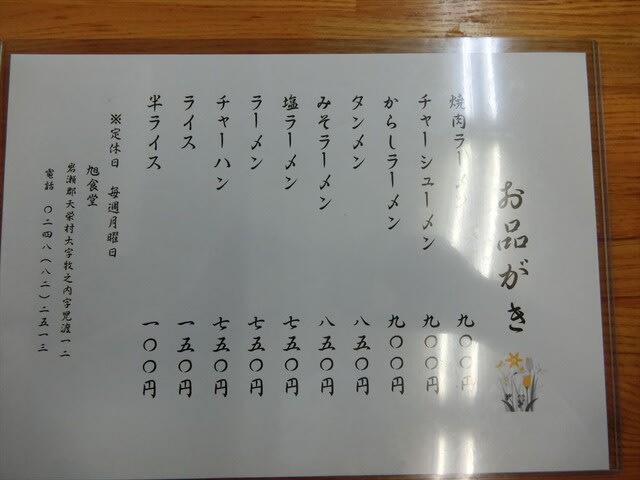 お品がき
焼肉ラーメン 九〇〇円
チャーシューメン 九〇〇円
からしラーメン 九〇〇円
タンメン 八五〇円
みそラーメン 八五〇円
塩ラーメン 七五〇円
ラーメン 七五〇円
チャーハン 七五〇円
ライス 一五〇円
半ライス 一〇〇円
※定休日 毎週月曜日
旭食堂
岩瀬郡天栄村大字牧之内字児渡一二
電話 〇二四八(八二)二五一三